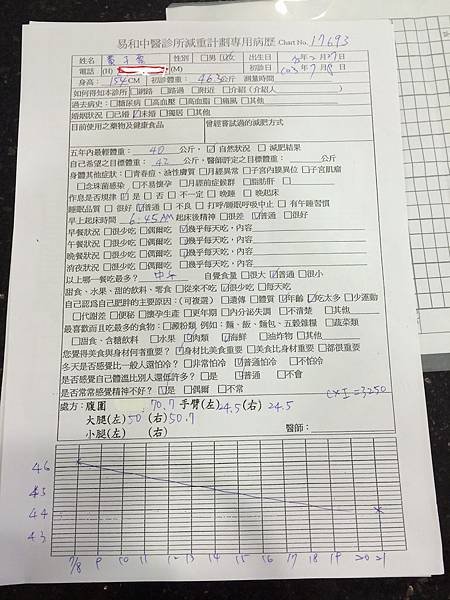 易和中醫診所減重計劃專用病歷 Chart No. 17693
姓名 性別 □男 □女 出生 年2月27日
電話 (H) (M) 初診日 年7月8日
身高: 154 CM 初診體重: 46.3公斤 測量時間
如何得知本診所 □網路 □路過 □附近 □介紹 (介紹人 )
過去病史: □糖尿病 □高血壓 □高血脂 □痛風 □其他
婚姻狀況 □已婚 ☑未婚 □獨居 □其他
目前使用之藥物及健康食品 曾經嘗試過的減肥方式
五年內最輕體重: 40 公斤, ☑自然狀況 □減肥結果
自己希望之目標體重: 42 公斤, 醫師評定之目標體重: 公斤
身體其他症狀: □青春痘、油性膚質 □月經異常 □子宮內膜異位 □子宮肌瘤
□念珠菌感染 □不易懷孕 □月經前症候群 □脂肪肝 □
作息是否規律 ☑是 □否 □不一定 □晚睡 □晚起床
睡眠品質 □很好 ☑普通 □不良 □打呼/睡眠呼吸中止 □有午睡習慣
早上起床時間 6:45AM 起床後精神 □很差 ☑普通 □很好
早餐狀況 □很少吃 □偶爾吃 ☑幾乎每天吃, 內容
午餐狀況 □很少吃 □偶爾吃 ☑幾乎每天吃, 內容
晚餐狀況 □很少吃 □偶爾吃 ☑幾乎每天吃, 內容
消夜狀況 □很少吃 □偶爾吃 □幾乎每天吃, 內容
以上哪一餐吃最多? 中午 自覺食量 □很大 ☑普通 □很小
甜食、水果、甜的飲料、零食 □從來不吃 ☑很少吃 □每天吃
自己認為自己肥胖的主要原因: (可複選) □遺傳 □體質 ☑年齡 ☑吃太多 □少運動
□代謝差 □便秘 □懷孕生產 □更年期 □內分泌失調 □不清楚 □其他
最喜歡而且吃最多的食物: □澱粉類 例如: 麵、飯、麵包、五穀雜糧 □蔬菜類
□甜食、含糖飲料 □水果 ☑肉類 ☑海鮮 □油炸物 □其他
您覺得美食與身材何者重要? ☑身材比美食重要 □美食比身材重要 □都很重要
冬天是否感覺比一般人還怕冷? □非常怕冷 ☑普通怕冷 □不怕冷
是否感覺自己體溫比別人還低許多? □是 ☑普通 □不會
是否常常感覺精神不好? ☑是 □偶爾 □不常
處方: 腹圍 70.7 手臂(左) 24.5 (右) 24.5
大腿(左) 50 (右) 50.7
小腿(左) (右) 醫師:
46
45
44
43
7/8 9 10 11 12 13 14 15 16 17 18 19 20 21